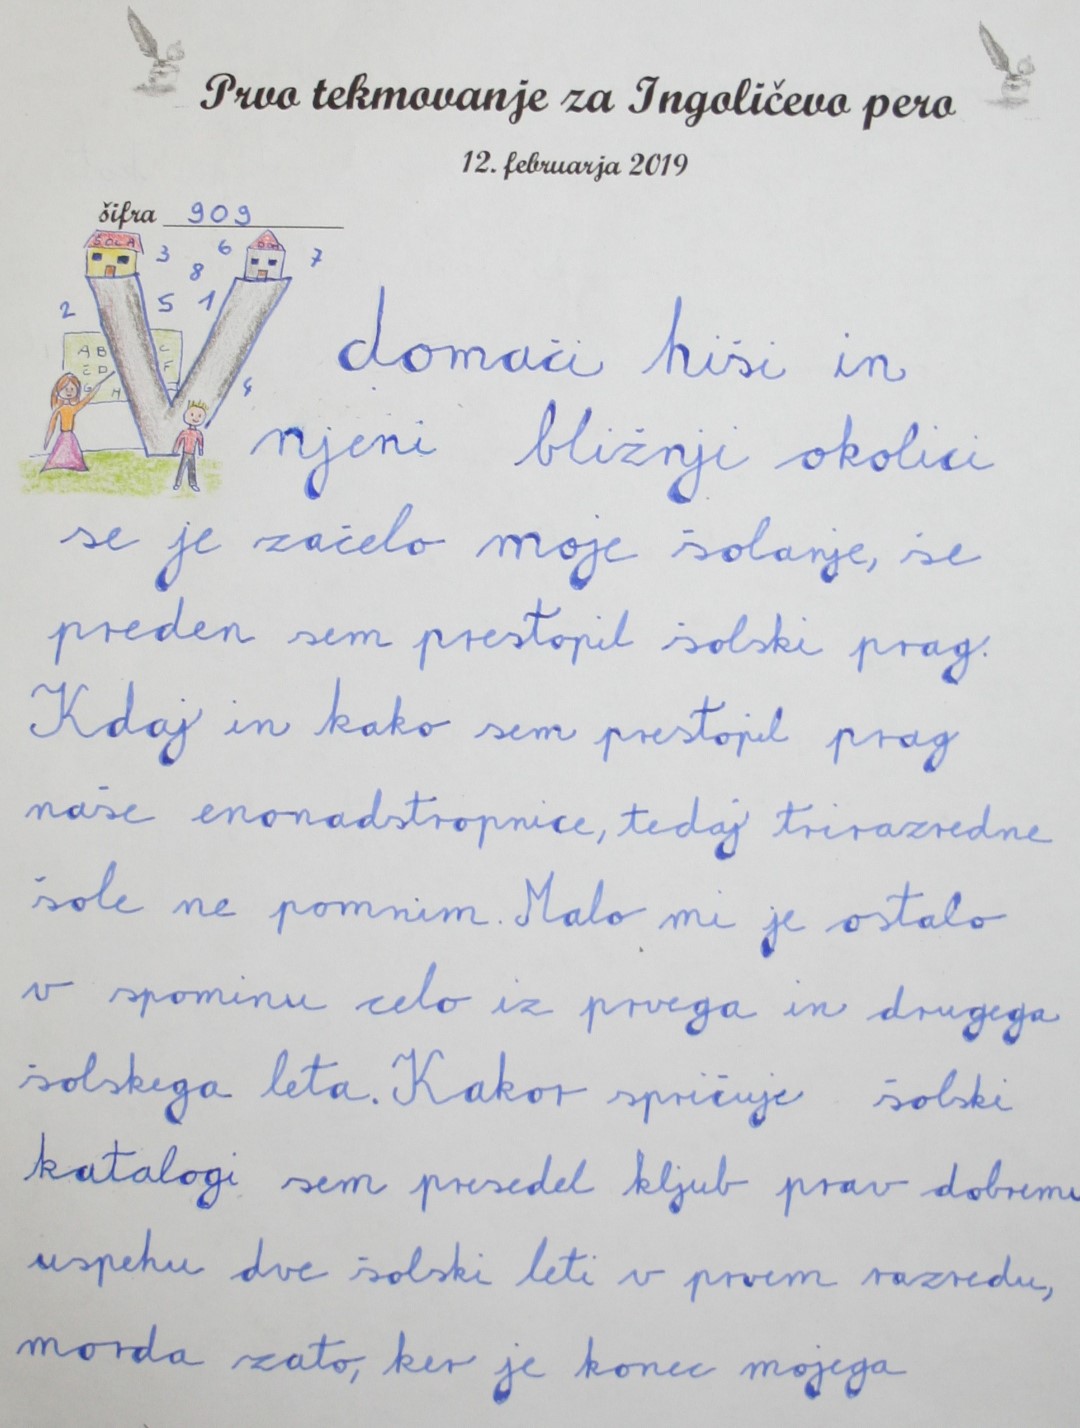 Prvo tekmovanje za Ingoličevo pero
12. februarja 2019
šifra 909
ŠOLA 3 6 DOM 7
8
2 5 1
A B C
Č D F
G H 4
V domači hiši in
njeni bližnji okolici
se je začelo moje šolanje, še
preden sem prestopil šolski prag.
Kdaj in kako sem prestopil prag
naše enonadstropnice, tedaj trirazredne
šole ne pomnim. Malo mi je ostalo
v spominu celo iz prvega in drugega
šolskega leta. Kakor spričuje šolski
katalogi sem presedel kljub prav dobremu
uspehu dve šolski leti v prvem razredu,
morda zato, ker je konec mojega